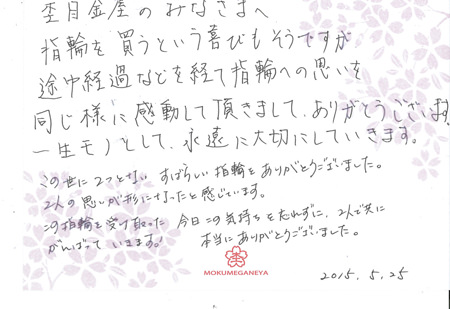 杢目金屋のみなさまへ
指輪を買うという喜びもそうですが
途中経過などを経て指輪への思いを
同じ様に感動して頂きまして、ありがとうございます。
一生モノとして、永遠に大切にしていきます。
この世に2つとない すばらしい指輪をありがとうございました。
2人の思いが形になったと感じています。
この指輪を受け取った 今日この気持ちを忘れずに、2人で共に
がんばって いきます! 本当にありがとうございました。
MOKUMEGANEYA
2015.5.25